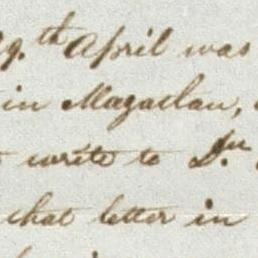 29.th April was
in Mazatlan,
write to Dn
that letter in